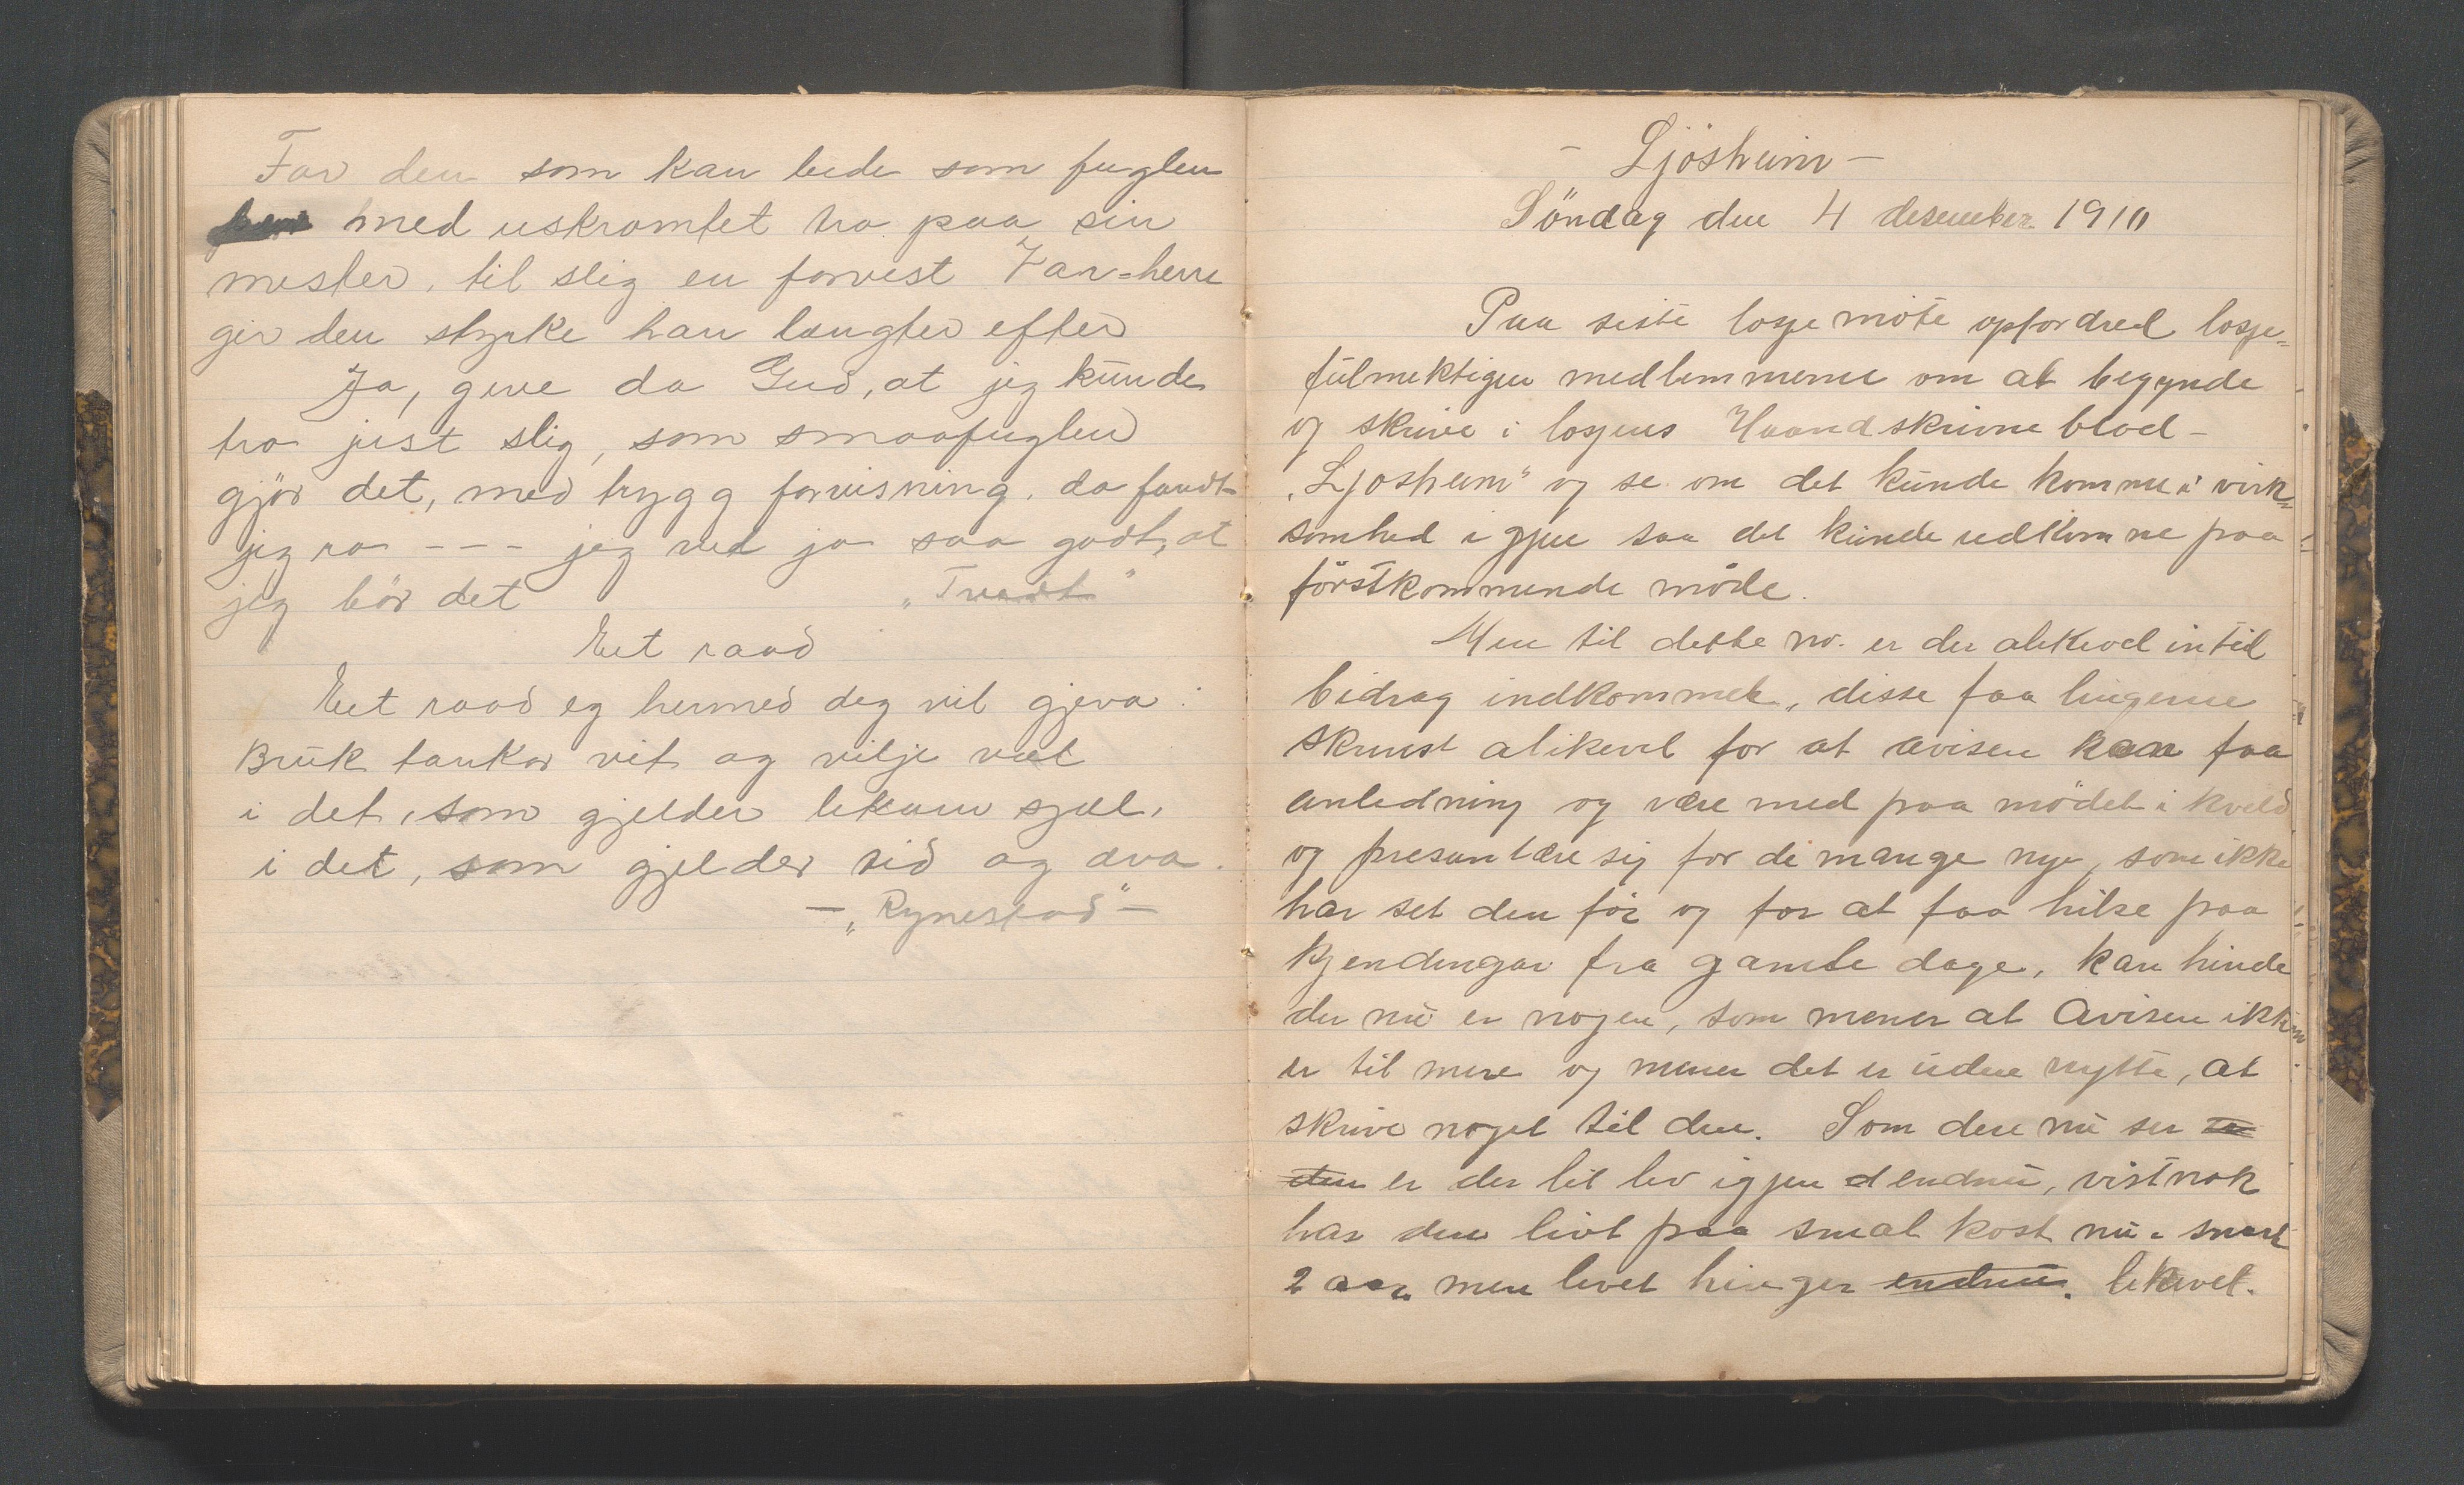 For den som kan bede som fuglen
med uskromtet tro paa sin
mester, til slig en forvist Var=herre
gir den styrke han længter efter
Ja, give da Gud, at jeg kunde
tro just slig, som smaafuglen
gjör det, med trygg forvisning. da fandt
jeg ro - - - jeg ved jo saa godt, at
jeg bör det „Tvedt"
Eit raad
Eit raad eg hermed deg vil gjeva:
Bruk tankar vit og vilje væl
i det, som gjelder lekam sjæl,
i det, som gjelder tid og æva.
- „Rynestad" -
- Ljösheim -
Söndag den 4 desember 1910
Paa siste losje möte opfordred losje=
fulmektigen medlemmerne om at begynde
og skrive i losjens Haandskrivne blad -
„Ljosheim" og se om det kunde komme i virk=
somhed igjen saa det kunde udkomme paa
förstkommende möde.
Men til dette no. er der alikevel intet
bidrag indkommet, disse faa linjerne
skrives alikevel for at avisen kan faa
anledning og være med paa mödet i kveld
og presentære sig for de mange nye, som ikke
har set den för og for at faa hilse paa
kjendingar fra gamle dage, kan hende
der nu er nogen, som mener at Avisen ikke
er til mere og mener det er uden nytte, at
skrive noget til den. Som dere nu ser
den er der lit liv igjen endnu, vistnok
har den livt paa smal kost nu snart
2 aar men livet hænger endnu. likevel.